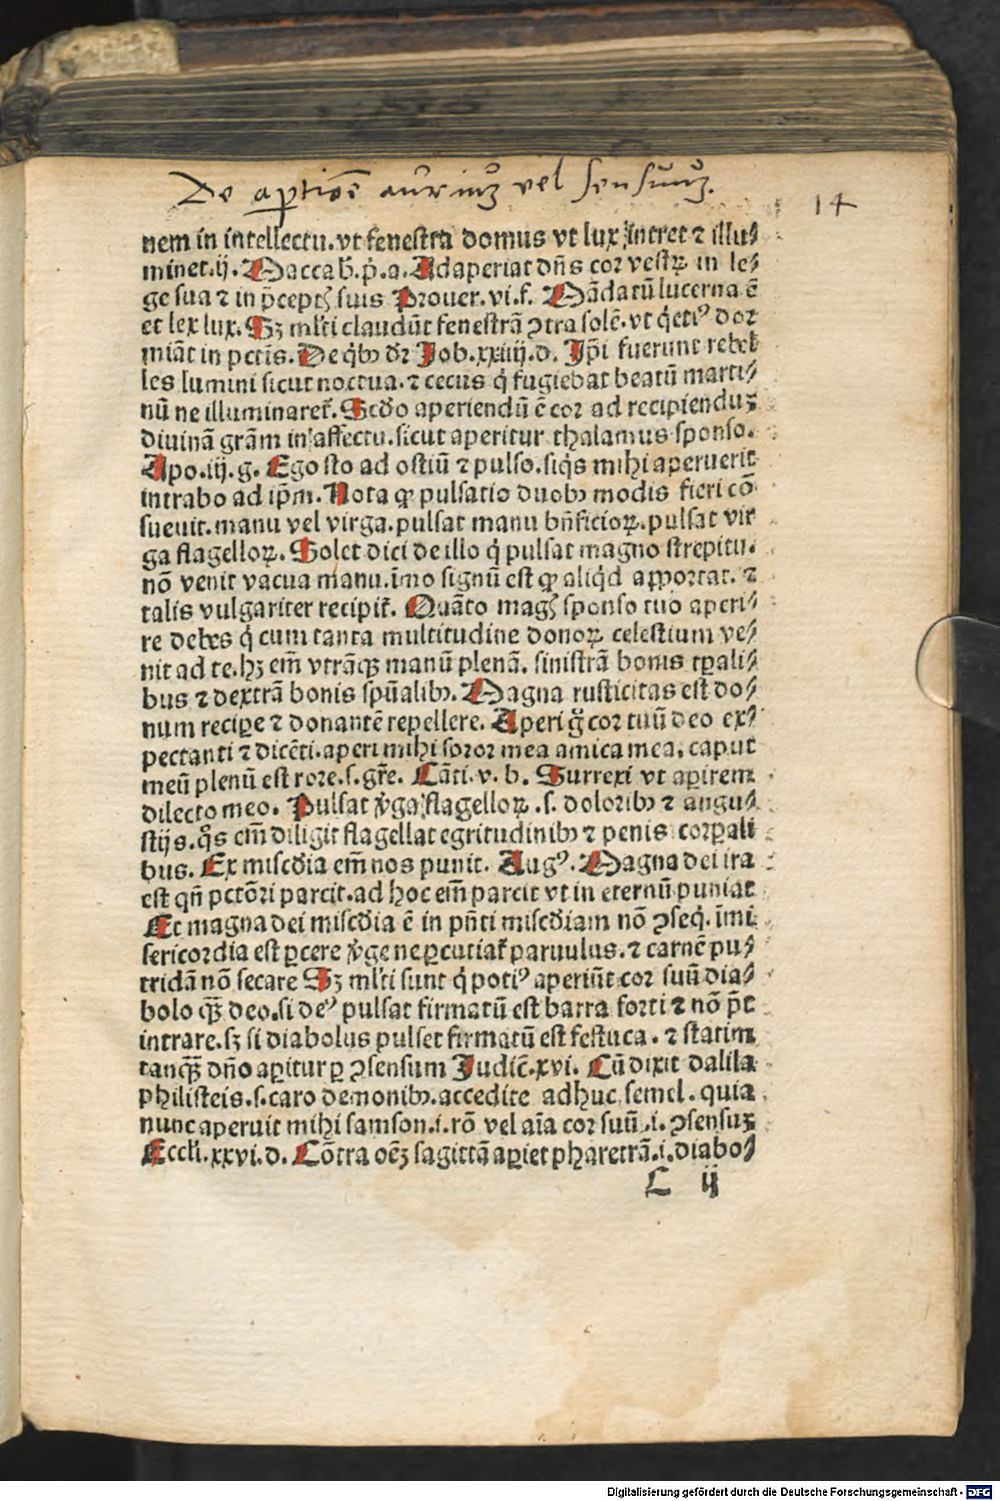 De aꝑtiõe auriuꝫ vel sensuuꝫ.
14
nem in intellectu. vt fenestra domus vt lux intret ⁊ illu⸗
minet. ij. Macca b̃. p̃. a. Adaperiat dñs cor vestrꝝ in le⸗
ge sua ⁊ in p̃ceptꝭ suis Prouer. vi. f. Mãdatũ lucerna ē
et lex lux. Sꝫ ml̃ti claudũt fenestrã ↄtra solē. vt q̇etiꝰ dor
miãt in pctĩs. De qͥbꝫ dr̃ Job. xxiiij. d. Ip̃i fuerunt rebel
les lumini sicut noctua. ⁊ cecus q̇ fugiebat beatũ marti⸗
nũ ne illuminaret᷑. Scd̃o aperiendũ ē cor ad recipienduꝫ
diuinã grãm in affectu. sicut aperitur thalamus sponso.
Apo. iij. g. Ego sto ad ostiũ ⁊ pulso. siqͥs mihi aperuerit
intrabo ad ip̃m. Nota ꝙ pulsatio duobꝫ modis fieri cõ
sueuit. manu vel virga. pulsat manu bñficioꝝ. pulsat vir
ga flagelloꝝ. Solet dici de illo q̇ pulsat magno strepitu.
nõ venit vacua manu. ĩmo signũ est ꝙ aliqͥd apportat. ⁊
talis vulgariter recipit᷑. Quãto magꝭ sponso tuo aperi⸗
re debes q̇ cum tanta multitudine donoꝝ celestium ve⸗
nit ad te. hꝫ em̃ vtrãqꝫ manũ plenã. sinistrã bonis tꝑali⸗
bus ⁊ dextrã bonis spũalibꝫ. Magna rusticitas est do⸗
num recipe ⁊ donantē repellere. Aperi g̃ cor tuũ deo ex⸗
pectanti ⁊ dicẽti. aperi mihi soror mea amica mea. caput
meũ plenũ est rore. s. gr̃e. Cãti. v. b. Surrexi vt aꝑirem
dilecto meo. Pulsat ṽga flagelloꝝ. s. doloribꝫ ⁊ angu⸗
stijs. qͦs em̃ diligit flagellat egritudinibꝫ ⁊ penis corꝑali
bus. Ex misc̃dia em̃ nos punit. Augꝰ. Magna dei ira
est qñ pctõri parcit. ad hoc em̃ parcit vt in eternũ puniat
Et magna dei misc̃dia ē in pñti misc̃diam nõ ↄseq̇. ĩmi
sericordia est ꝑcere ṽge ne ꝑcutiat᷑ paruulus. ⁊ carnē pu⸗
tridã nõ secare Sꝫ ml̃ti sunt q̇ potiꝰ aperiũt cor suũ dia⸗
bolo qͣꝫ deo. si deꝰ pulsat firmatũ est barra forti ⁊ nõ p̃t
intrare. sꝫ si diabolus pulset firmatũ est festuca. ⁊ statim
tanqͣꝫ dño aꝑitur ꝑ ↄsensum Judic̃. xvi. Cũ dixit dalila
philisteis. s. caro demonibꝫ. accedite adhuc semel. quia
nunc aperuit mihi samson. i. rõ vel aĩa cor suũ. i. ↄsensuꝫ
Eccl̃i. xxvi. d. Cõtra oēꝫ sagittã aꝑiet pharetrã. i. diabo⸗
C ij
Digitalisierung gefördert durch die Deutsche Forschungsgemeinschaft - DFG